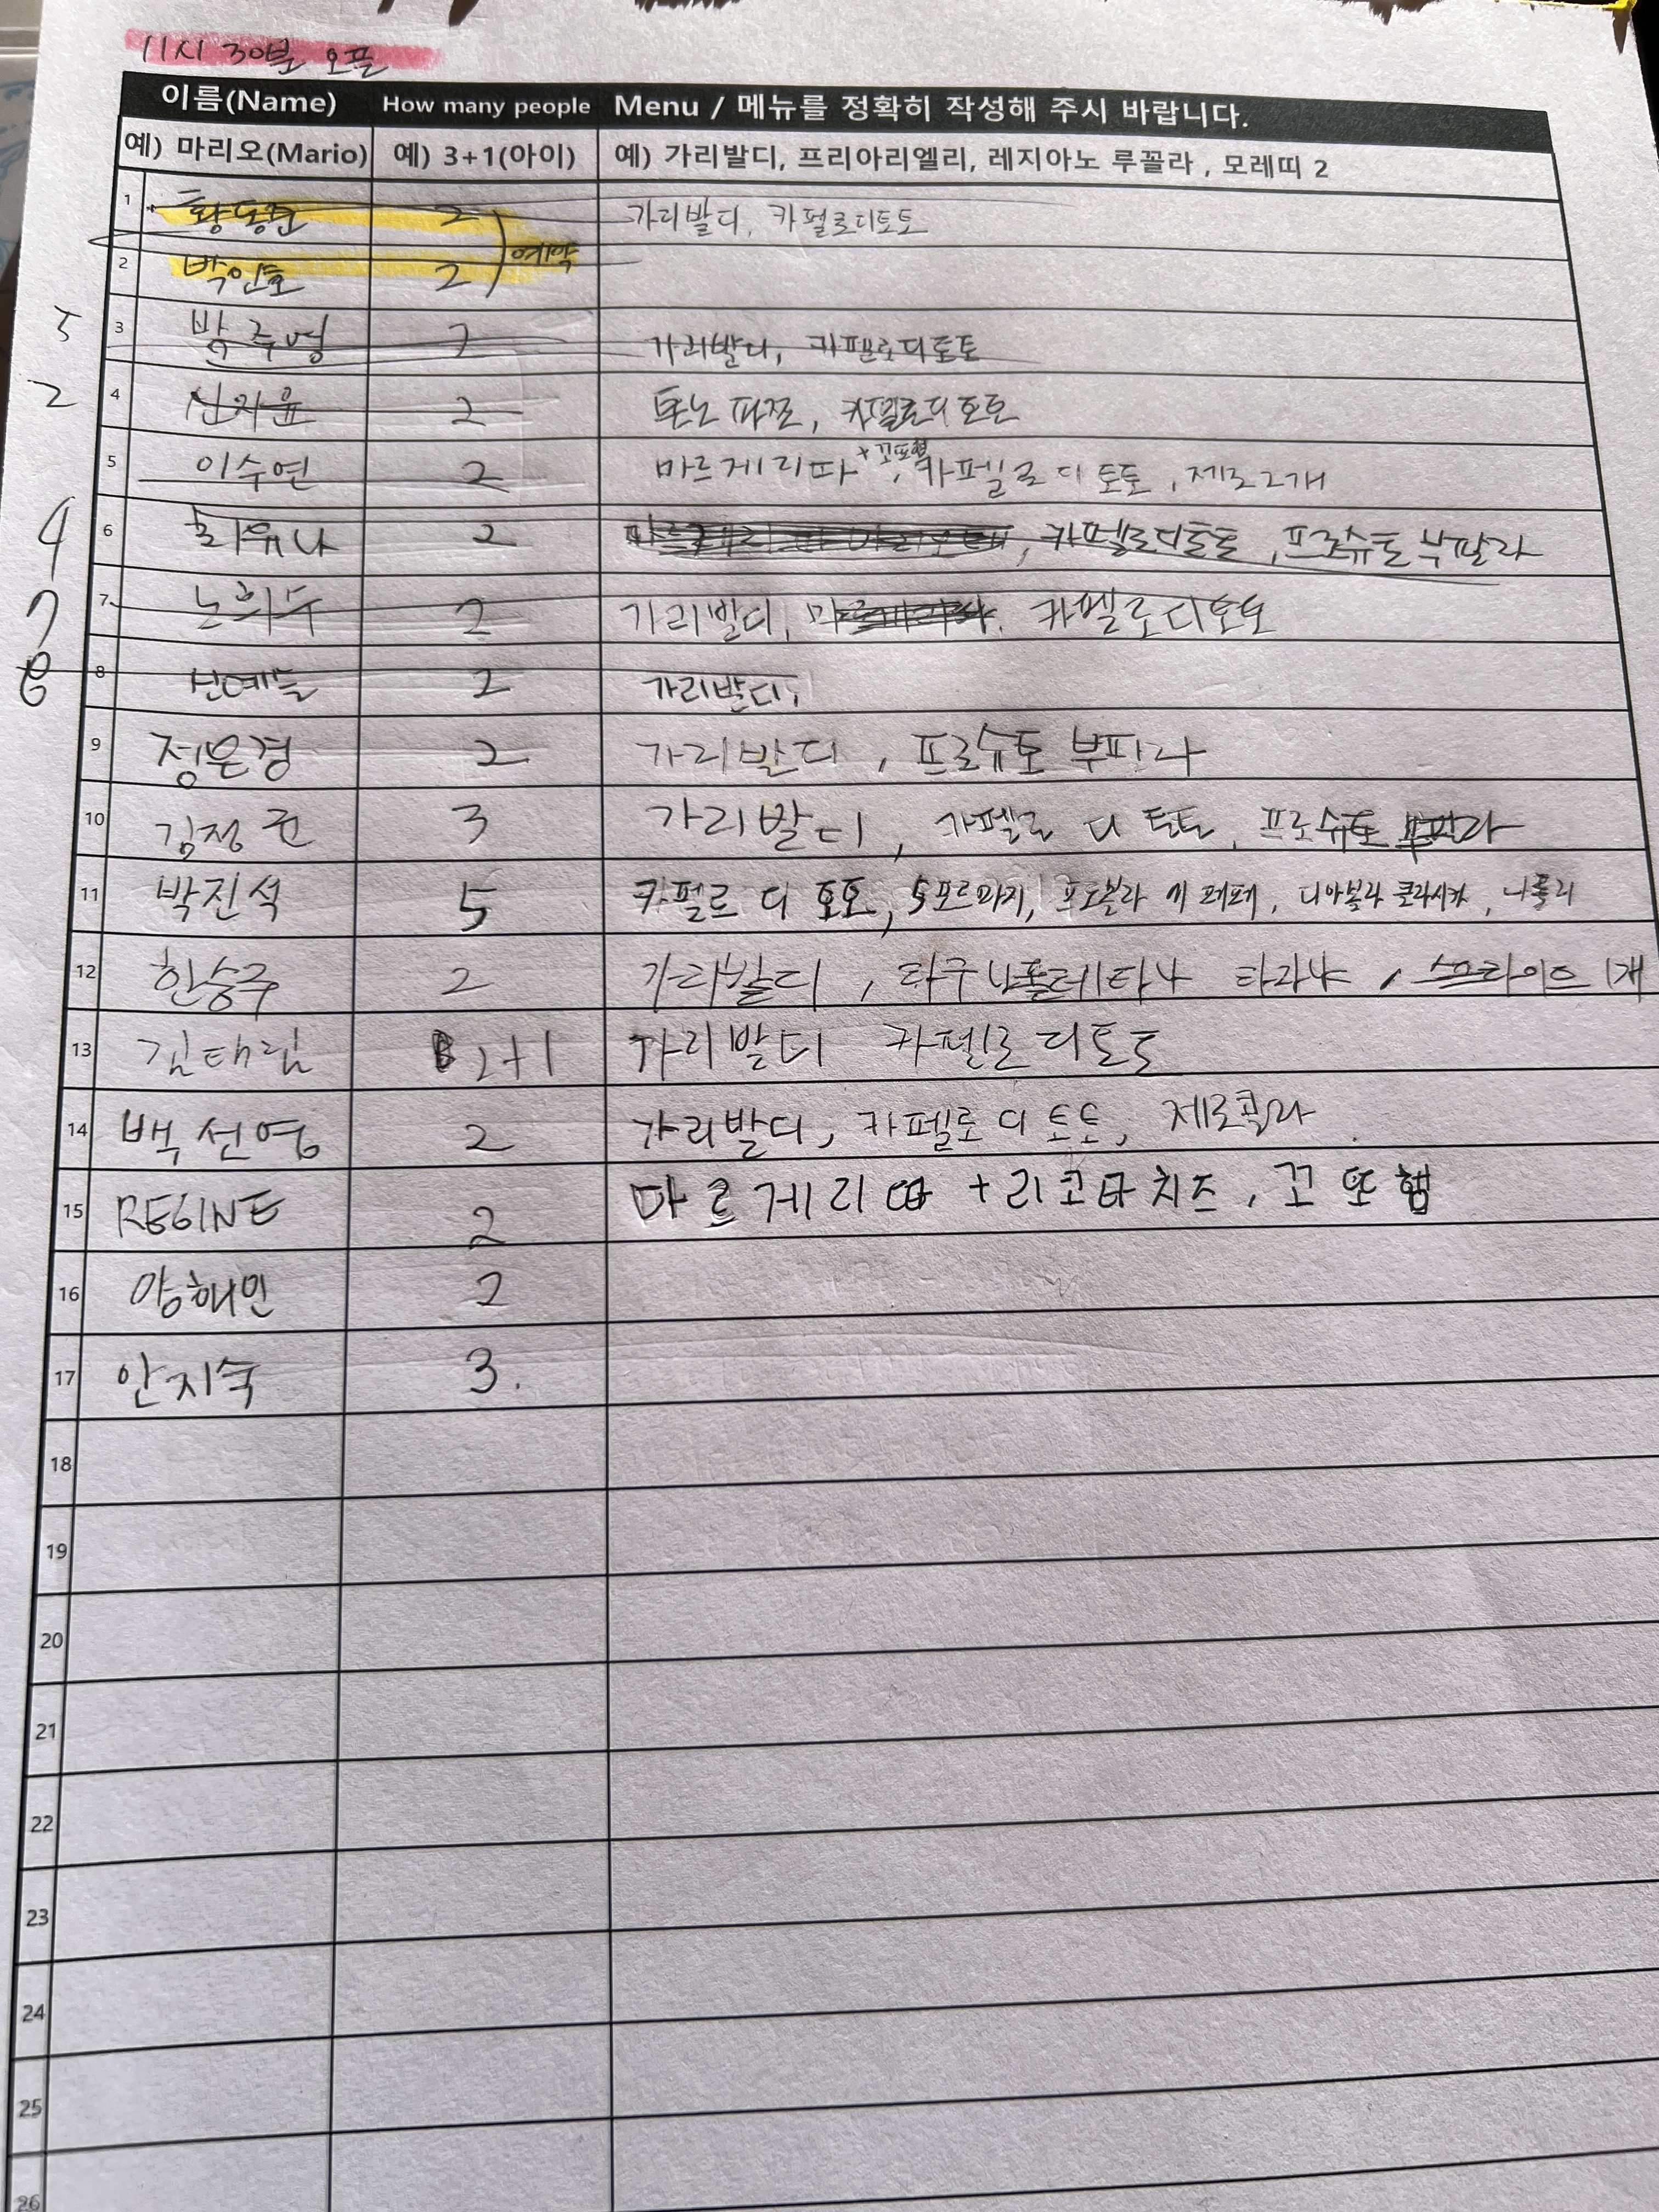 11시 30분 오픈
이름(Name) How many people Menu / 메뉴를 정확히 작성해 주시 바랍니다.
예) 마리오(Mario) 예) 3+1(아이) 예) 가리발디, 프리아리엘리, 레지아노 루꼴라 , 모레띠 2
1 황동준 2 가리발디, 카펠로디토토
예약
2 박인호 2
5 3 박주영 2 가리발디, 카펠로디토토
2 4 신지윤 2 카펠로디토토
5 이수연 2 마르게리따 +꼬또햄, 카펠로디토토, 제로2개
4 6 최유나 2 , 카펠로디토토, 프로슈토 부팔라
7 7 노희수 2 가리발디, 카펠로디토토
8 8 2 가리발디,
9 정은경 2 가리발디, 프로슈토 부파라
10 김정 3 가리발디, 카펠로 디 토토, 프로슈토 부팔라
11 박진석 5 카펠로 디 토토, 5포르마지, 프로볼라 에 페페, 디아볼라 클라시카, 나폴리
12 한승주 2 가리발디, 타라냐, 스프라이트 1개
13 김태림 2+1 가리발디 카펠로디토토
14 백선영 2 가리발디, 카펠로디토토, 제로콜라
15 REGINE 2 마르게리따 +리코타치즈, 꼬또햄
16 양해인 2
17 안지숙 3.
18
19
20
21
22
23
24
25
26